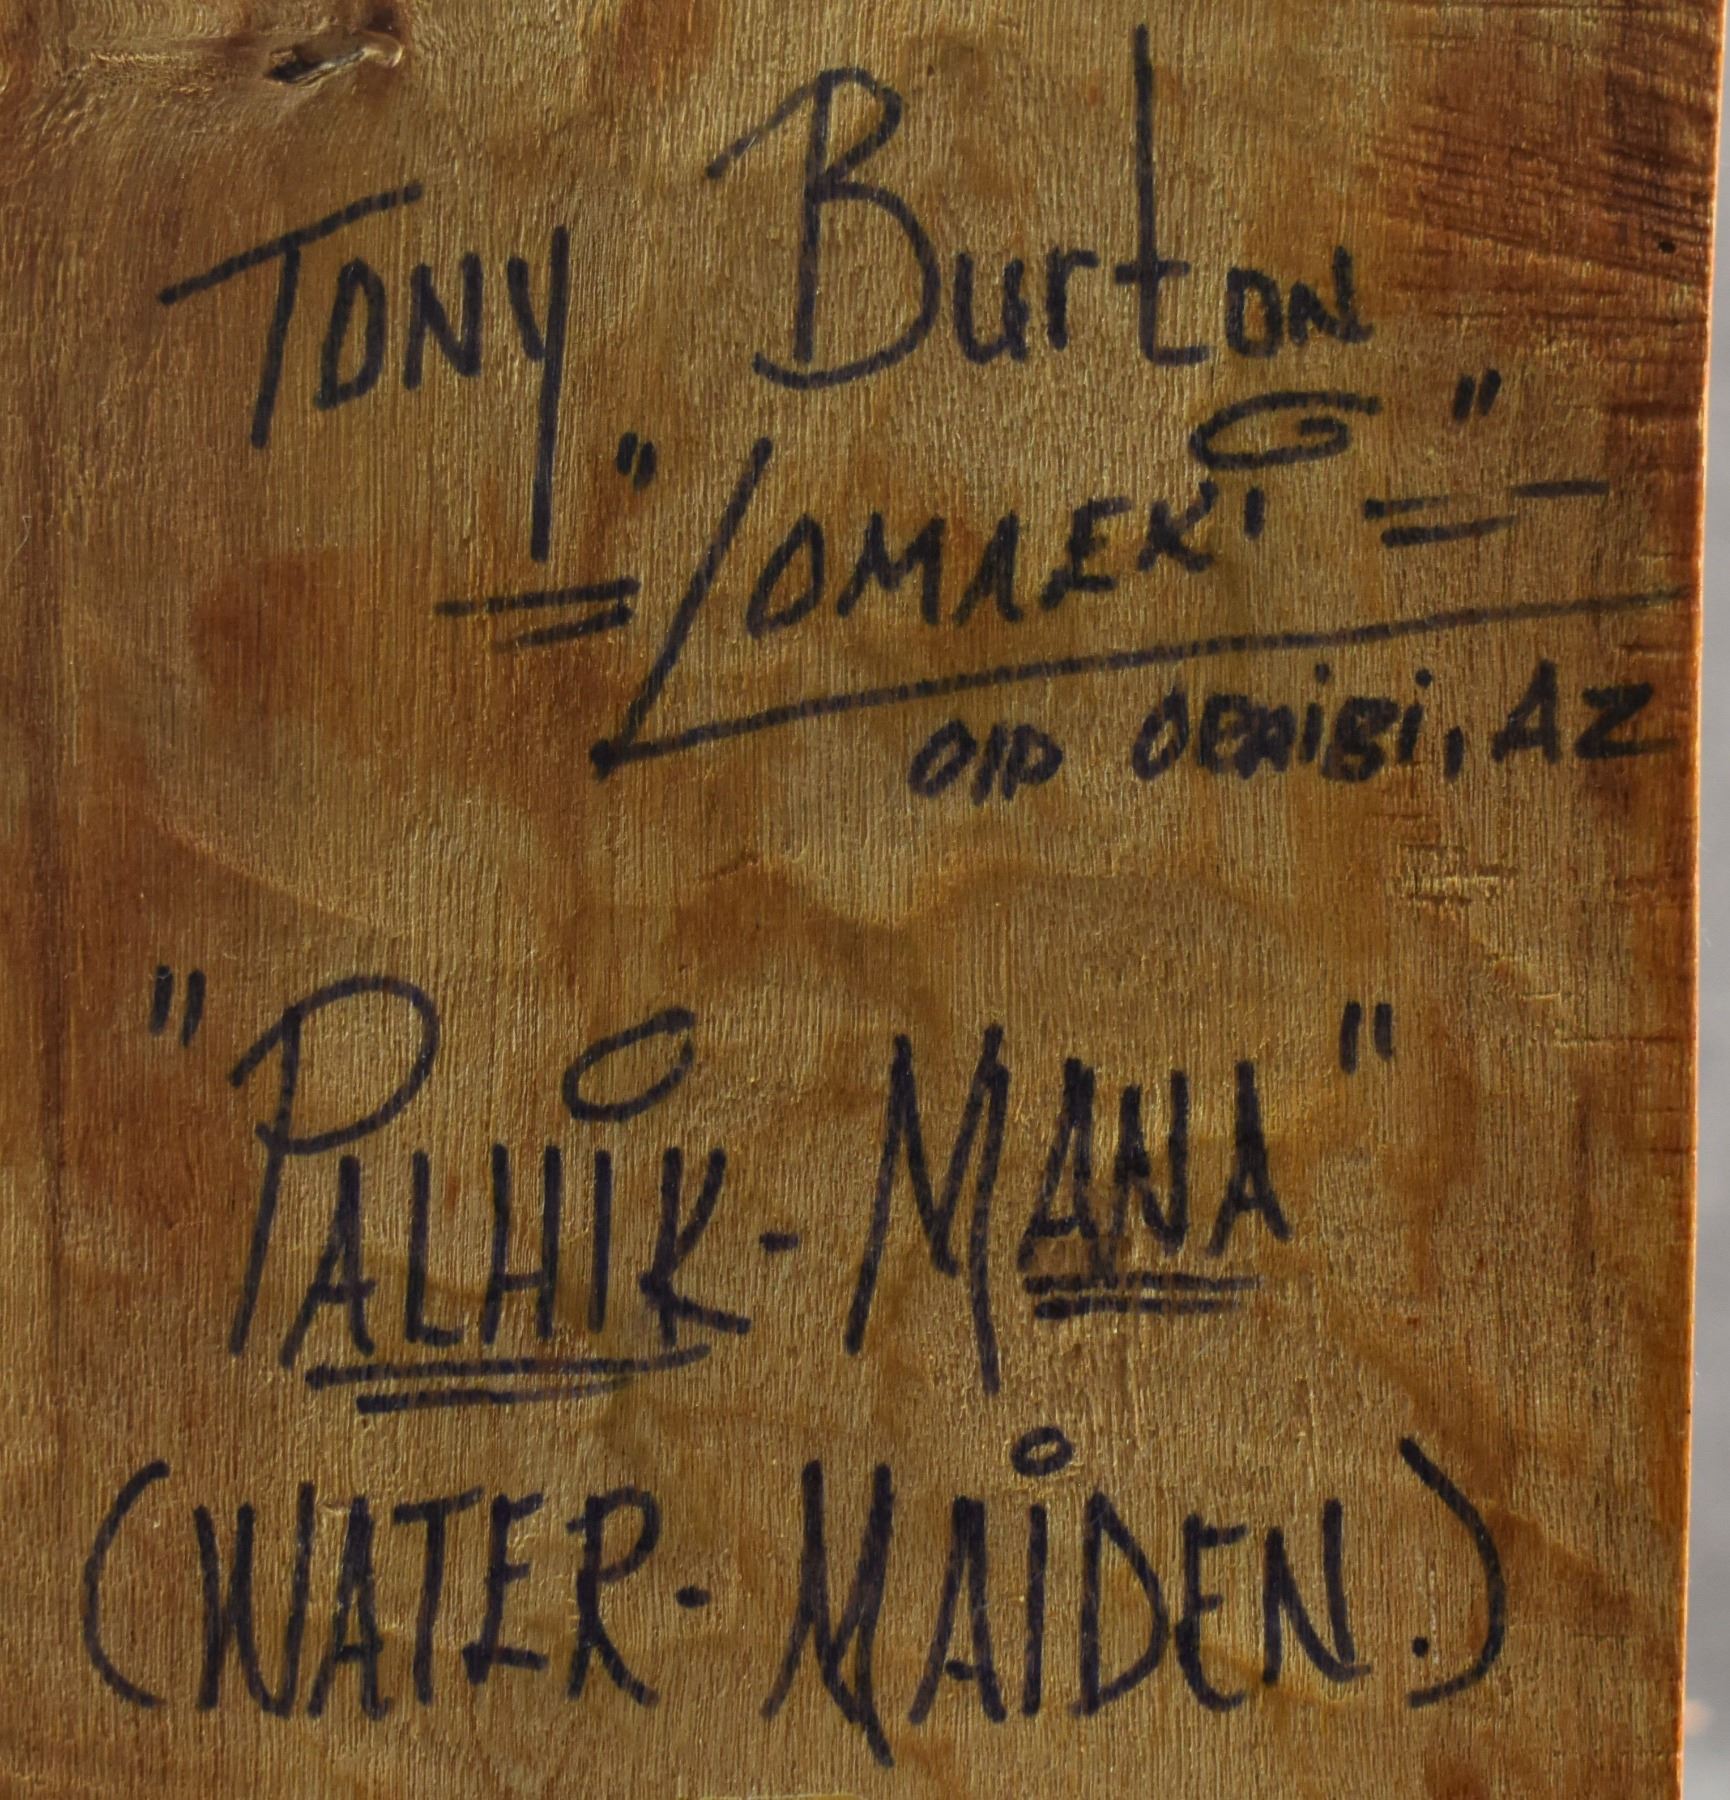 Tony Burton
"Lomaeki"
Old Oraibi, AZ
"PALHIK-MANA"
(WATER-MAIDEN.)